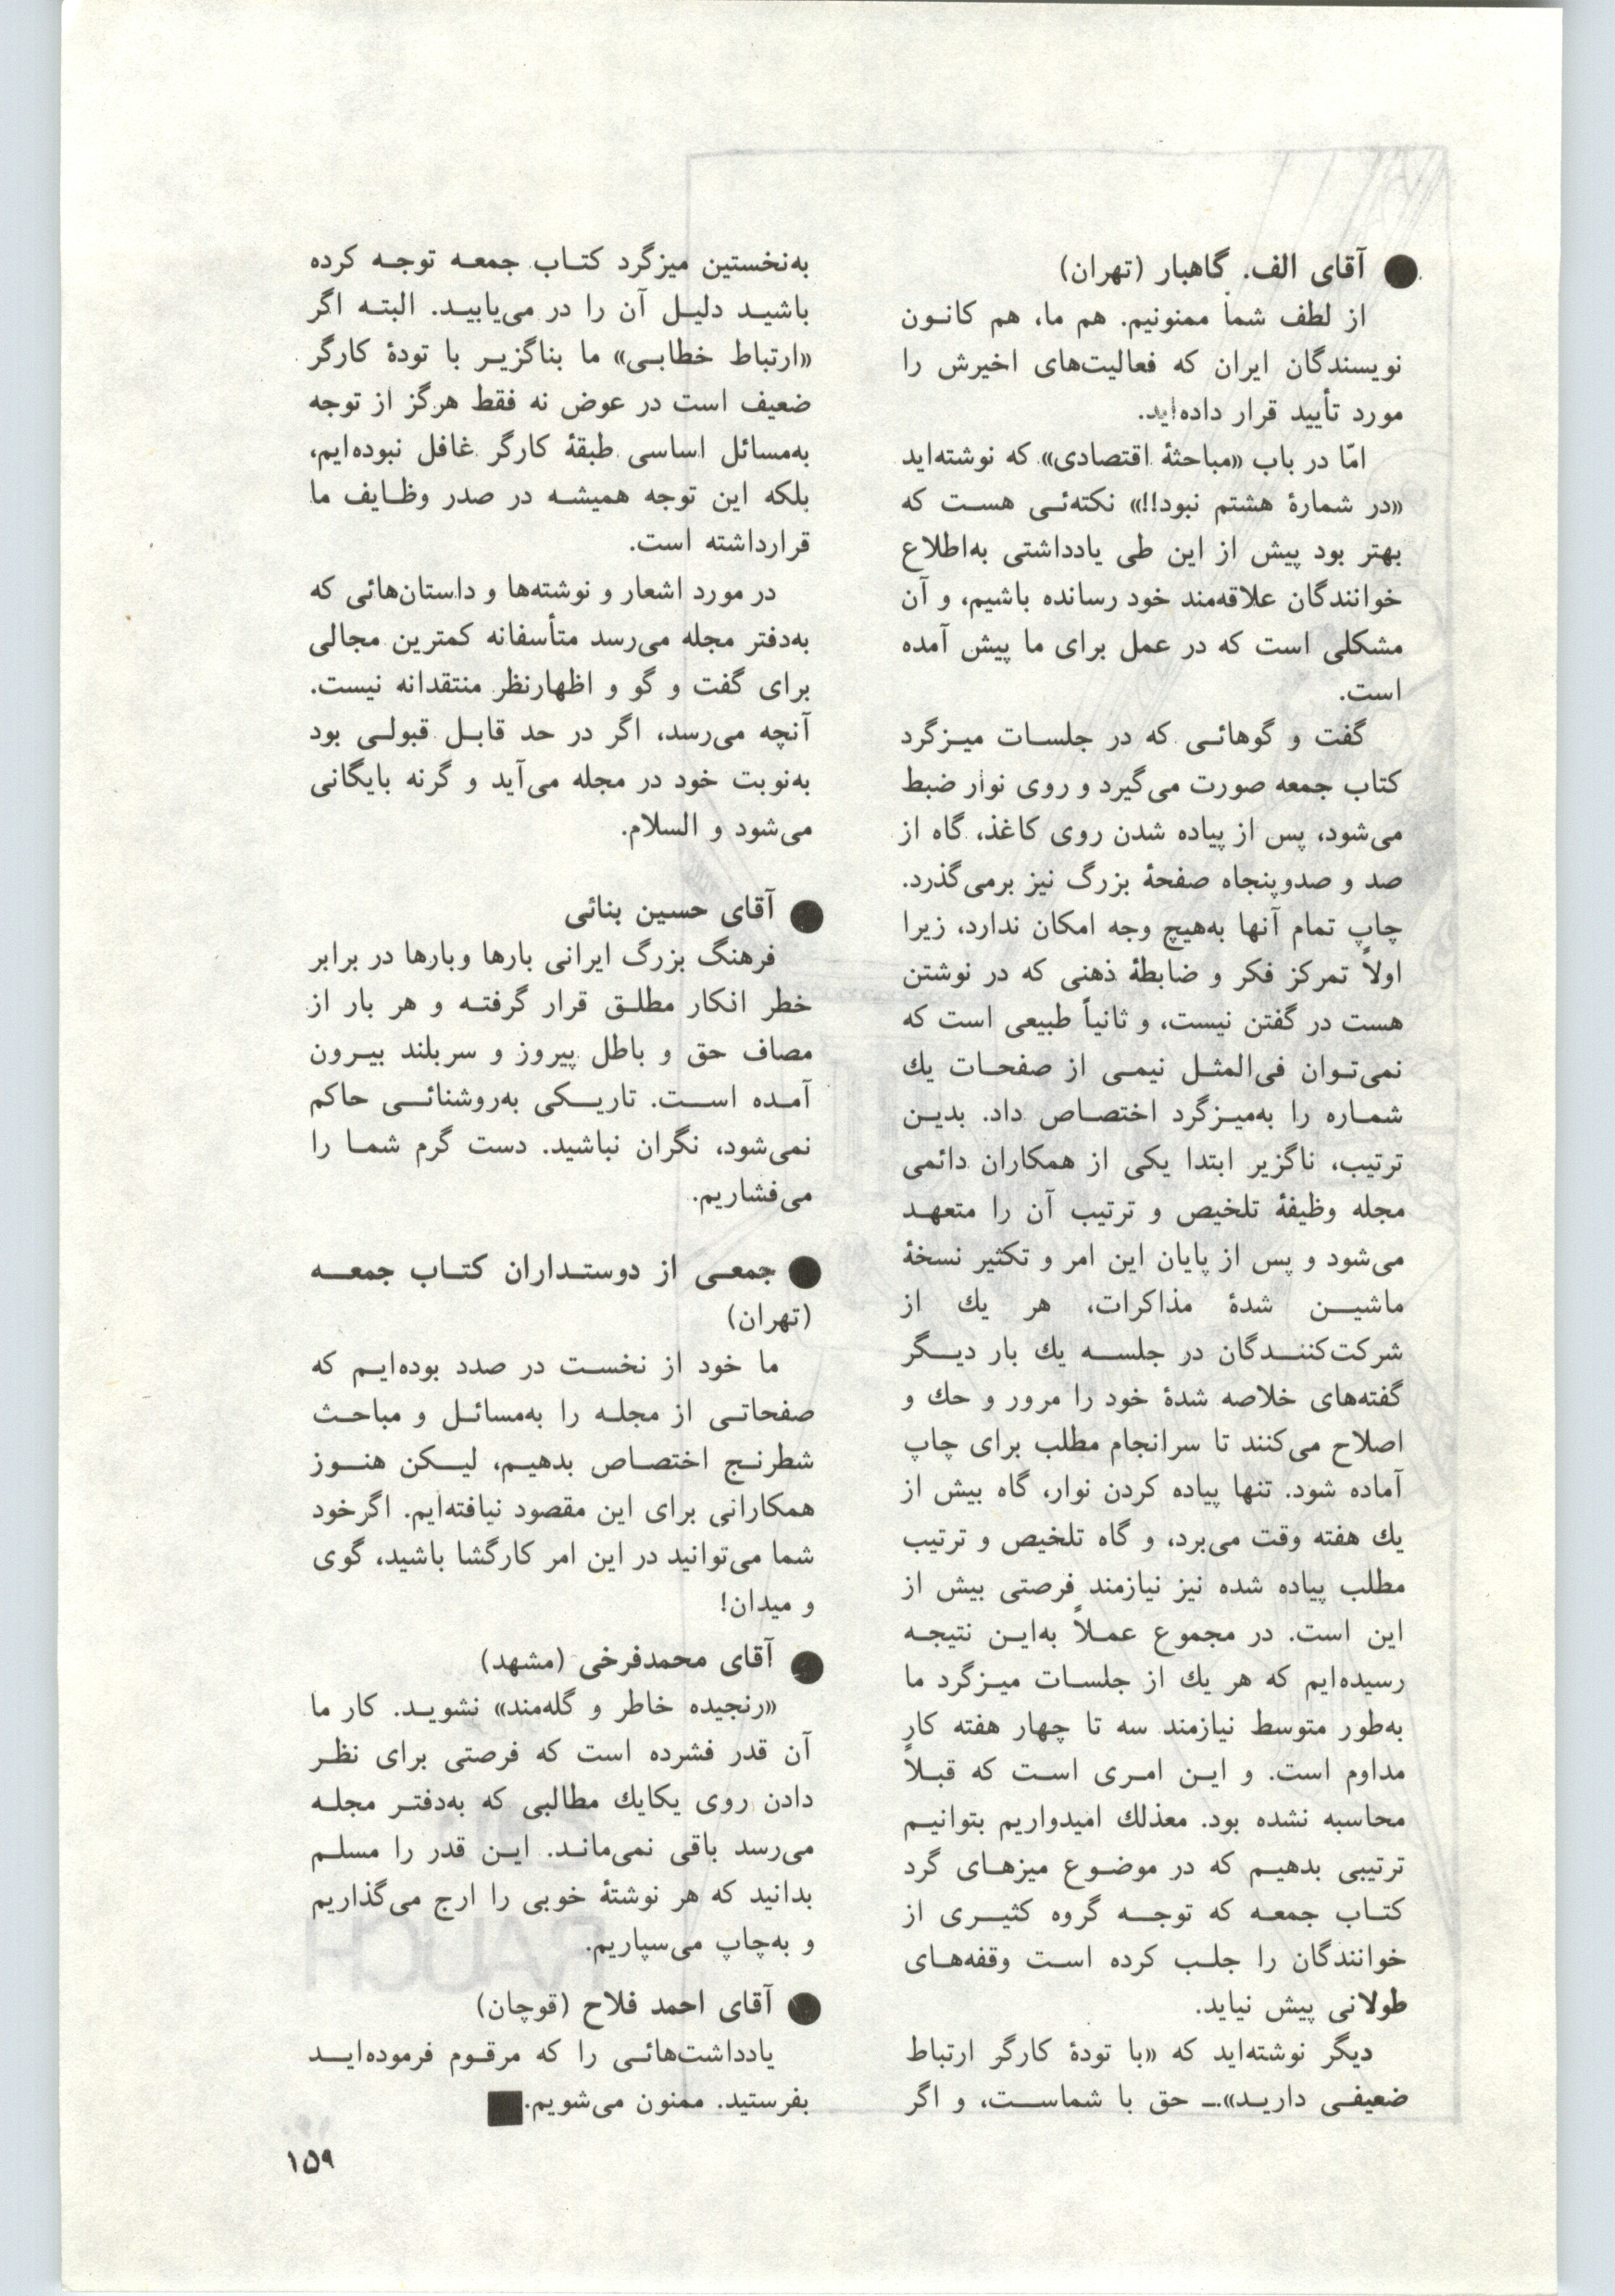 ● آقای الف. گاهبار (تهران)
از لطف شما ممنونیم. هم ما، هم کانون
نویسندگان ایران که فعالیت‌های اخیرش را
مورد تأیید قرار داده‌اید.
امّا در باب «مباحثهٔ اقتصادی» که نوشته‌اید
«در شمارهٔ هشتم نبود!!» نکته‌ئی هست که
بهتر بود پیش از این طی یادداشتی به‌اطلاع
خوانندگان علاقه‌مند خود رسانده باشیم، و آن
مشکلی است که در عمل برای ما پیش آمده
است.
گفت و گوهائی که در جلسات میزگرد
کتاب جمعه صورت می‌گیرد و روی نوار ضبط
می‌شود، پس از پیاده شدن روی کاغذ، گاه از
صد و صدوپنجاه صفحهٔ بزرگ نیز برمی‌گذرد.
چاپ تمام آنها به‌هیچ وجه امکان ندارد، زیرا
اولاً تمرکز فکر و ضابطهٔ ذهنی که در نوشتن
هست در گفتن نیست، و ثانیاً طبیعی است که
نمی‌توان فی‌المثل نیمی از صفحات یك
شماره را به‌میزگرد اختصاص داد. بدین
ترتیب، ناگزیر ابتدا یکی از همکاران دائمی
مجله وظیفهٔ تلخیص و ترتیب آن را متعهد
می‌شود و پس از پایان این امر و تکثیر نسخهٔ
ماشین شدهٔ مذاکرات، هر یك از
شرکت‌کنندگان در جلسه یك بار دیگر
گفته‌های خلاصه شدهٔ خود را مرور و حك و
اصلاح می‌کنند تا سرانجام مطلب برای چاپ
آماده شود. تنها پیاده کردن نوار، گاه بیش از
یك هفته وقت می‌برد، و گاه تلخیص و ترتیب
مطلب پیاده شده نیز نیازمند فرصتی بیش از
این است. در مجموع عملاً به‌این نتیجه
رسیده‌ایم که هر یك از جلسات میزگرد ما
به‌طور متوسط نیازمند سه تا چهار هفته کار
مداوم است. و این امری است که قبلاً
محاسبه نشده بود. معذلك امیدواریم بتوانیم
ترتیبی بدهیم که در موضوع میزهای گرد
کتاب جمعه که توجه گروه کثیری از
خوانندگان را جلب کرده است وقفه‌های
طولانی پیش نیاید.
دیگر نوشته‌اید که «با تودهٔ کارگر ارتباط
ضعیفی دارید».ـ حق با شماست، و اگر
به‌نخستین میزگرد کتاب جمعه توجه کرده
باشید دلیل آن را در می‌یابید. البته اگر
«ارتباط خطابی» ما بناگزیر با تودهٔ کارگر
ضعیف است در عوض نه فقط هرگز از توجه
به‌مسائل اساسی طبقهٔ کارگر غافل نبوده‌ایم،
بلکه این توجه همیشه در صدر وظایف ما
قرارداشته است.
در مورد اشعار و نوشته‌ها و داستان‌هائی که
به‌دفتر مجله می‌رسد متأسفانه کمترین مجالی
برای گفت و گو و اظهارنظر منتقدانه نیست.
آنچه می‌رسد، اگر در حد قابل قبولی بود
به‌نوبت خود در مجله می‌آید و گرنه بایگانی
می‌شود و السلام.
● آقای حسین بنائی
فرهنگ بزرگ ایرانی بارها وبارها در برابر
خطر انکار مطلق قرار گرفته و هر بار از
مصاف حق و باطل پیروز و سربلند بیرون
آمده است. تاریکی به‌روشنائی حاکم
نمی‌شود، نگران نباشید. دست گرم شما را
می‌فشاریم.
● جمعی از دوستداران کتاب جمعه
(تهران)
ما خود از نخست در صدد بوده‌ایم که
صفحاتی از مجله را به‌مسائل و مباحث
شطرنج اختصاص بدهیم، لیکن هنوز
همکارانی برای این مقصود نیافته‌ایم. اگرخود
شما می‌توانید در این امر کارگشا باشید، گوی
و میدان!
● آقای محمدفرخی (مشهد)
«رنجیده خاطر و گله‌مند» نشوید. کار ما
آن قدر فشرده است که فرصتی برای نظر
دادن روی یکایك مطالبی که به‌دفتر مجله
می‌رسد باقی نمی‌ماند. این قدر را مسلم
بدانید که هر نوشتهٔ خوبی را ارج می‌گذاریم
و به‌چاپ می‌سپاریم.
● آقای احمد فلاح (قوچان)
یادداشت‌هائی را که مرقوم فرموده‌اید
بفرستید. ممنون می‌شویم.■
۱۵۹